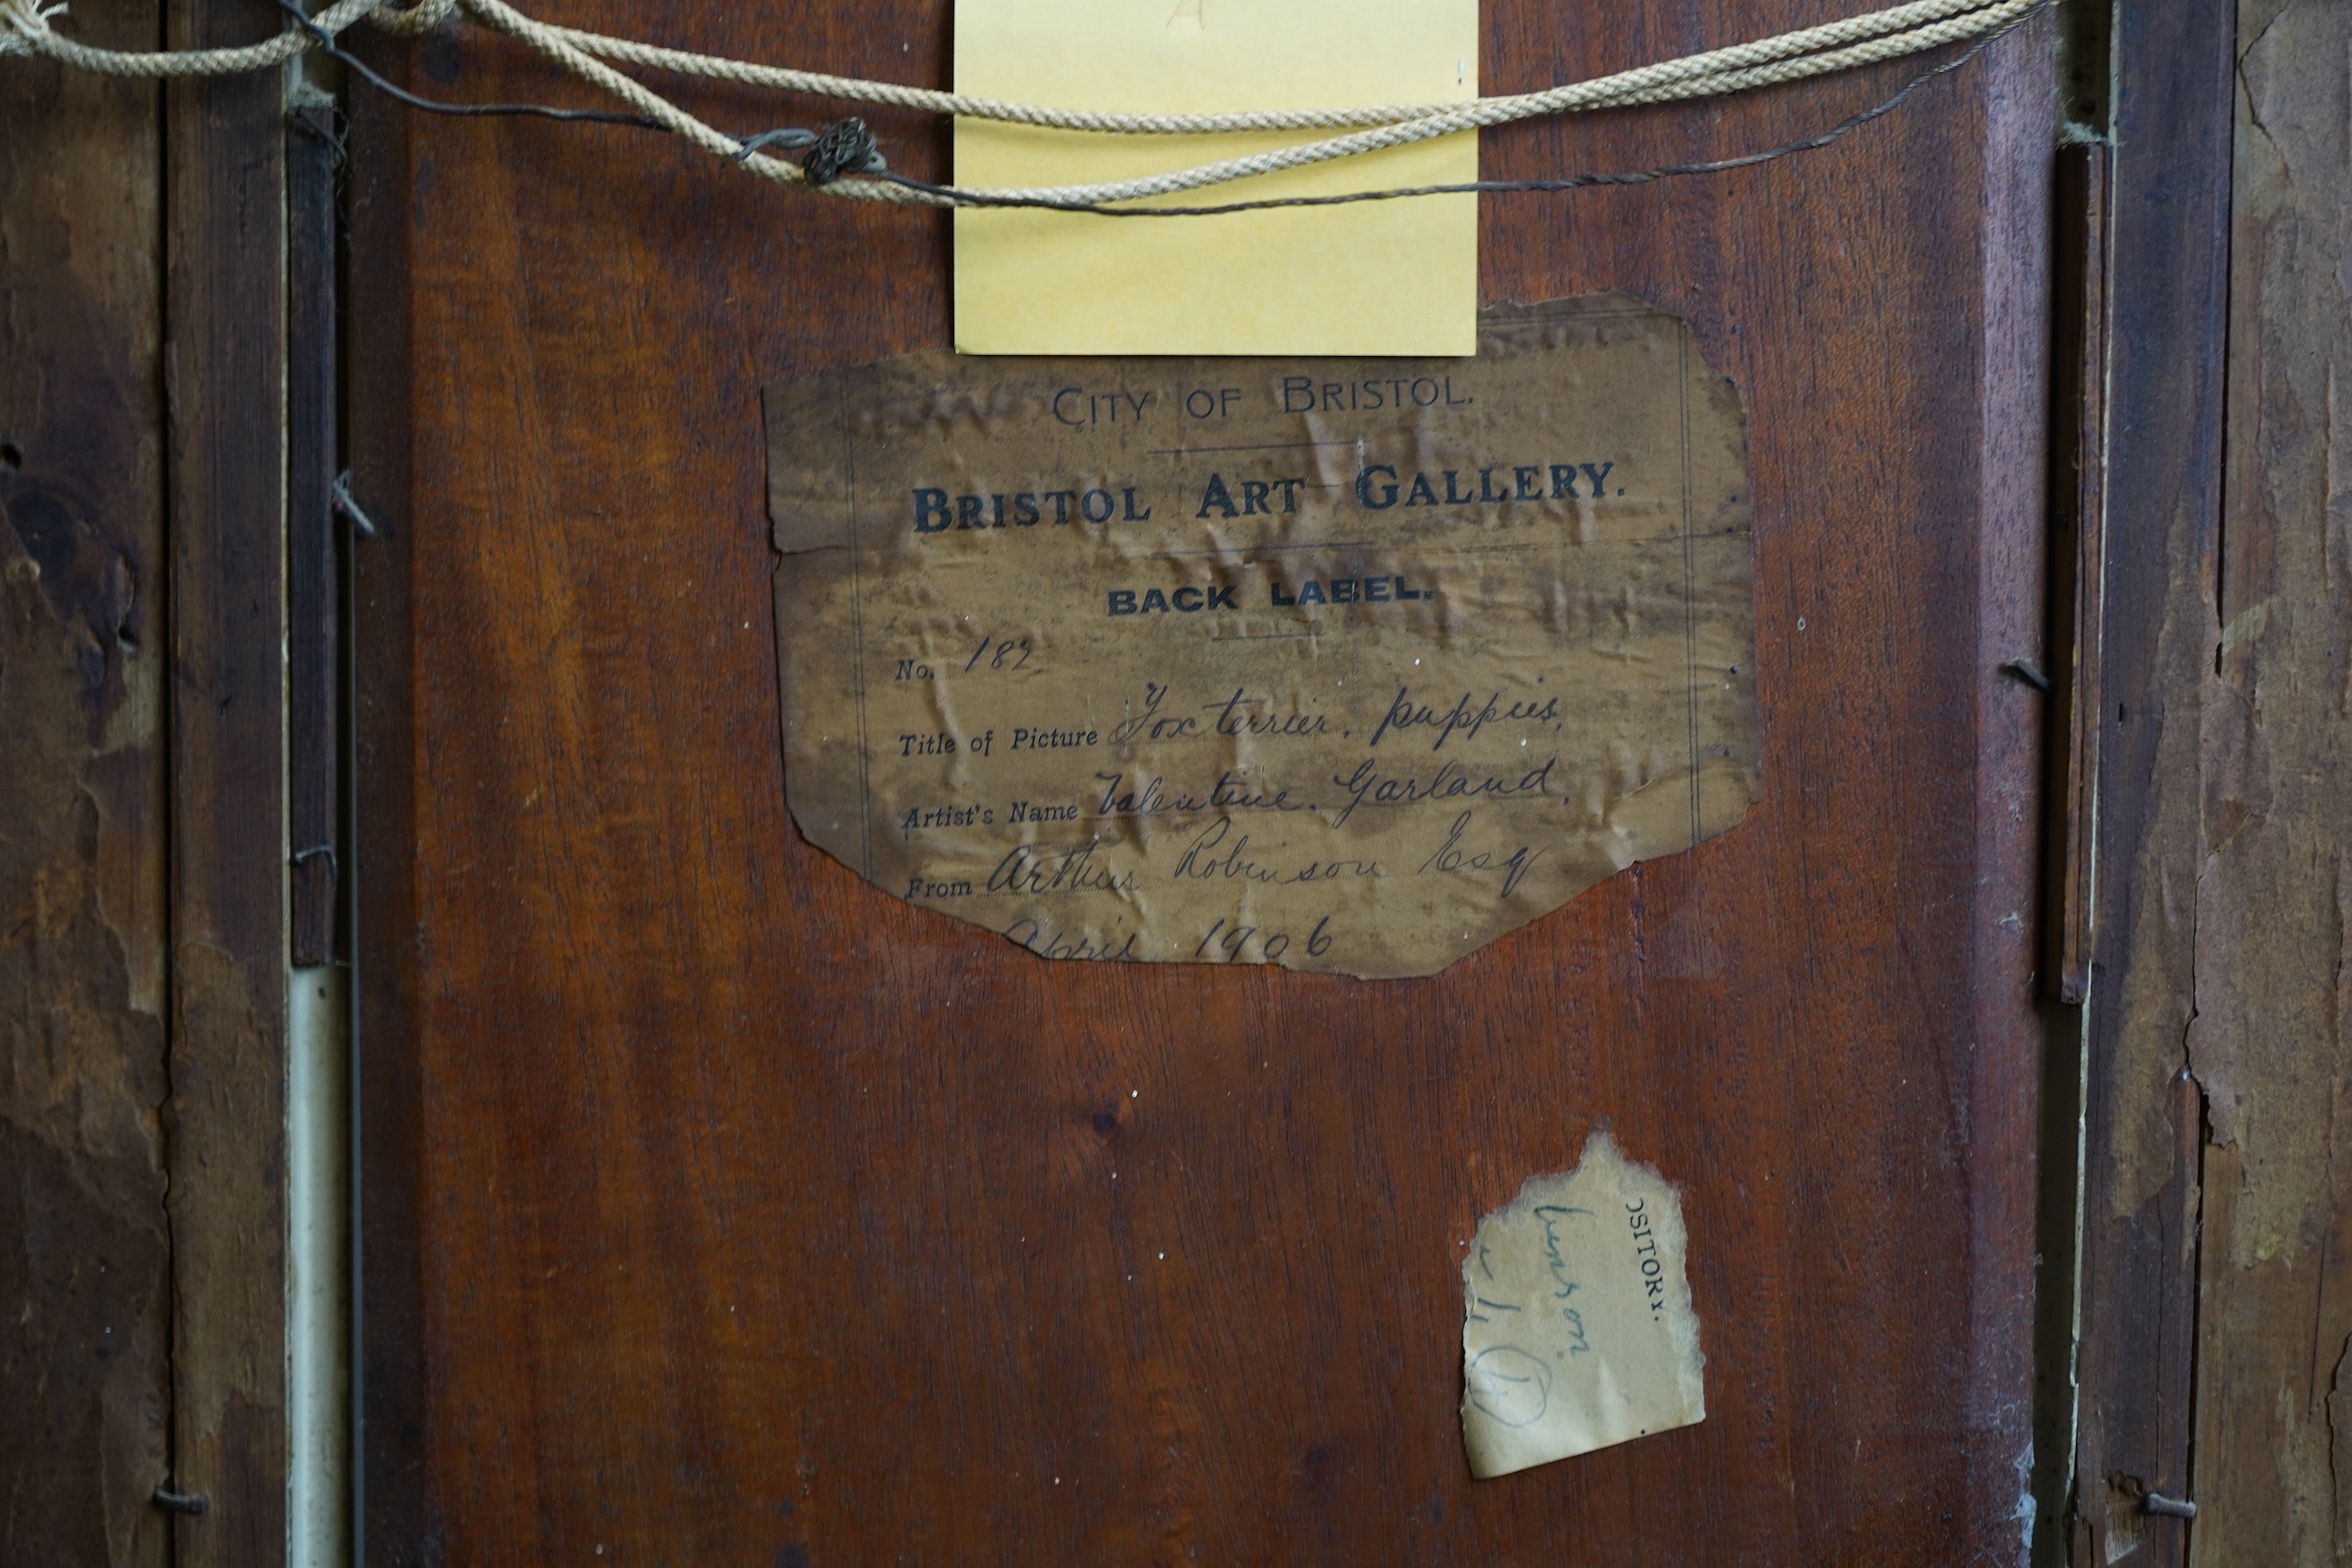 CITY OF BRISTOL.
BRISTOL ART GALLERY.
BACK LABEL.
No. 182
Title of Picture Fox terrier. puppies,
Artist's Name Valentine. Garland,
From Arthur Robinson Esq
April 1906
OSITORY.